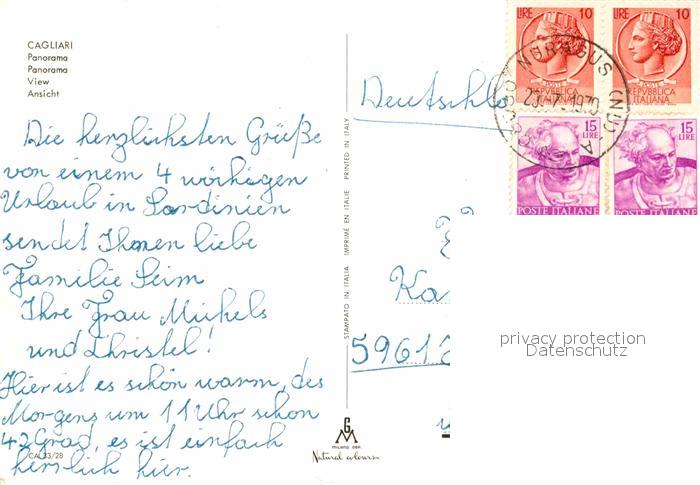 CAGLIARI
Panorama
Panorama
View
Ansicht
Die herzlichsten Grüße
von einem 4 wöchigen
Urlaub in Sardinien
sendet Ihnen liebe
Familie Seim
Ihre Frau Michels
und Christel!
Hier ist es schön warm, des
Morgens um 11 Uhr schon
42 Grad, es ist einfach
herrlich hier.
CAL 33/28
STAMPATO IN ITALIA IMPRIMÉ EN ITALIE PRINTED IN ITALY
GM
MILANO
Natural colours
LIRE 10
LIRE 10
POSTE
REPVBBLICA
ITALIANA
POSTE
REPVBBLICA
ITALIANA
NURAGUS (NU)
1970
15
LIRE
15
LIRE
POSTE ITALIANE
POSTE ITALIANE
Deutschla
Ka
5961
privacy protection
Datenschutz